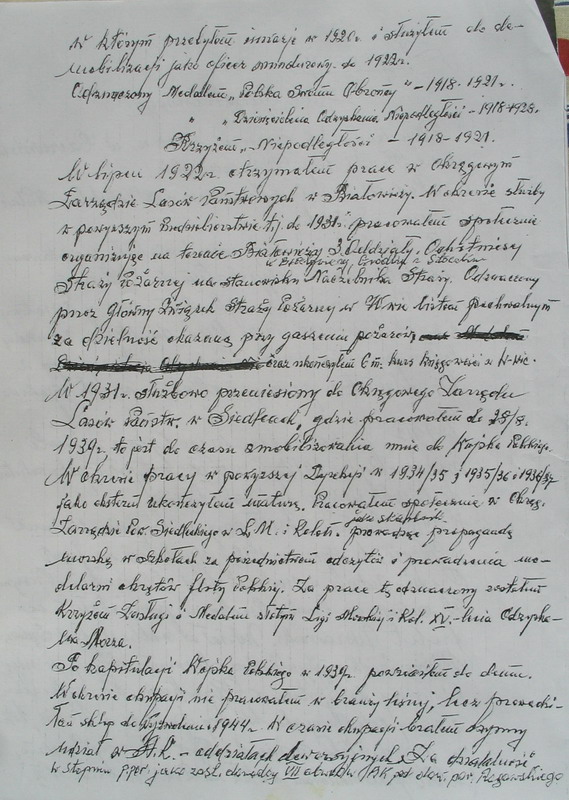 w którym przebyłem inwazję w 1920r. i służyłem do de-
mobilizacji jako oficer mundurowy. do 1922r.
Odznaczony Medalem „Polska Swemu Obrońcy" – 1918-1921.
" „Dziesięciolecia Odzyskania Niepodległości – 1918+1928.
Krzyżem „Niepodległości – 1918-1921.
W lipcu 1922r otrzymałem pracę w Okręgowym
Zarządzie Lasów Państwowych w Białowieży. W okresie służby
w powyższym t.j. do 1931r. pracowałem społecznie
organizując na terenie Białowieży 3 Oddziały Ochotniczej
w Gródku i
Straży Pożarnej na stanowisku Naczelnika Straży. Odznaczony
przez Główny Związek Straży Pożarnej w W-wie listem pochwalnym
za dzielność okazaną przy gaszeniu pożarów
oraz ukończyłem 6 m. kurs księgowości w W-wie.
W 1931r. służbowo przeniesiony do Okręgowego Zarządu
Lasów Państw. w Siedlcach, gdzie pracowałem do 28/8.
1939r. to jest do czasu zmobilizowania mnie do Wojska Polskiego.
W okresie pracy w powyższej Dyrekcji w 1934/35 i 1935/36 i 1936/37
jako ekstern ukończyłem maturę. Pracowałem społecznie w Okręg.
Zarządzie Pow. Siedleckiego w L.M. i Kolon. prowadząc propagandę
jako skarbnik
morską w szkołach za pośrednictwem odczytów i prowadzenia mo-
delarni okrętów floty Polskiej. Za pracę tę odznaczony zostałem
Krzyżem Zasługi i Medalem złotym Ligi Morskiej i Kol. XV-lecia Odzyska-
nia Morza.
Po kapitulacji Wojska Polskiego w 1939r. powróciłem do domu.
W okresie okupacji nie pracowałem w branży leśnej, lecz prowadzi-
łem sklep do wyzwolenia 1944r. W czasie okupacji brałem czynny
udział w A.K. – oddziałach dywersyjnych Za działalność
w stopniu p.por. jako zast. dowódcy VII obwodu AK pod dow. por.